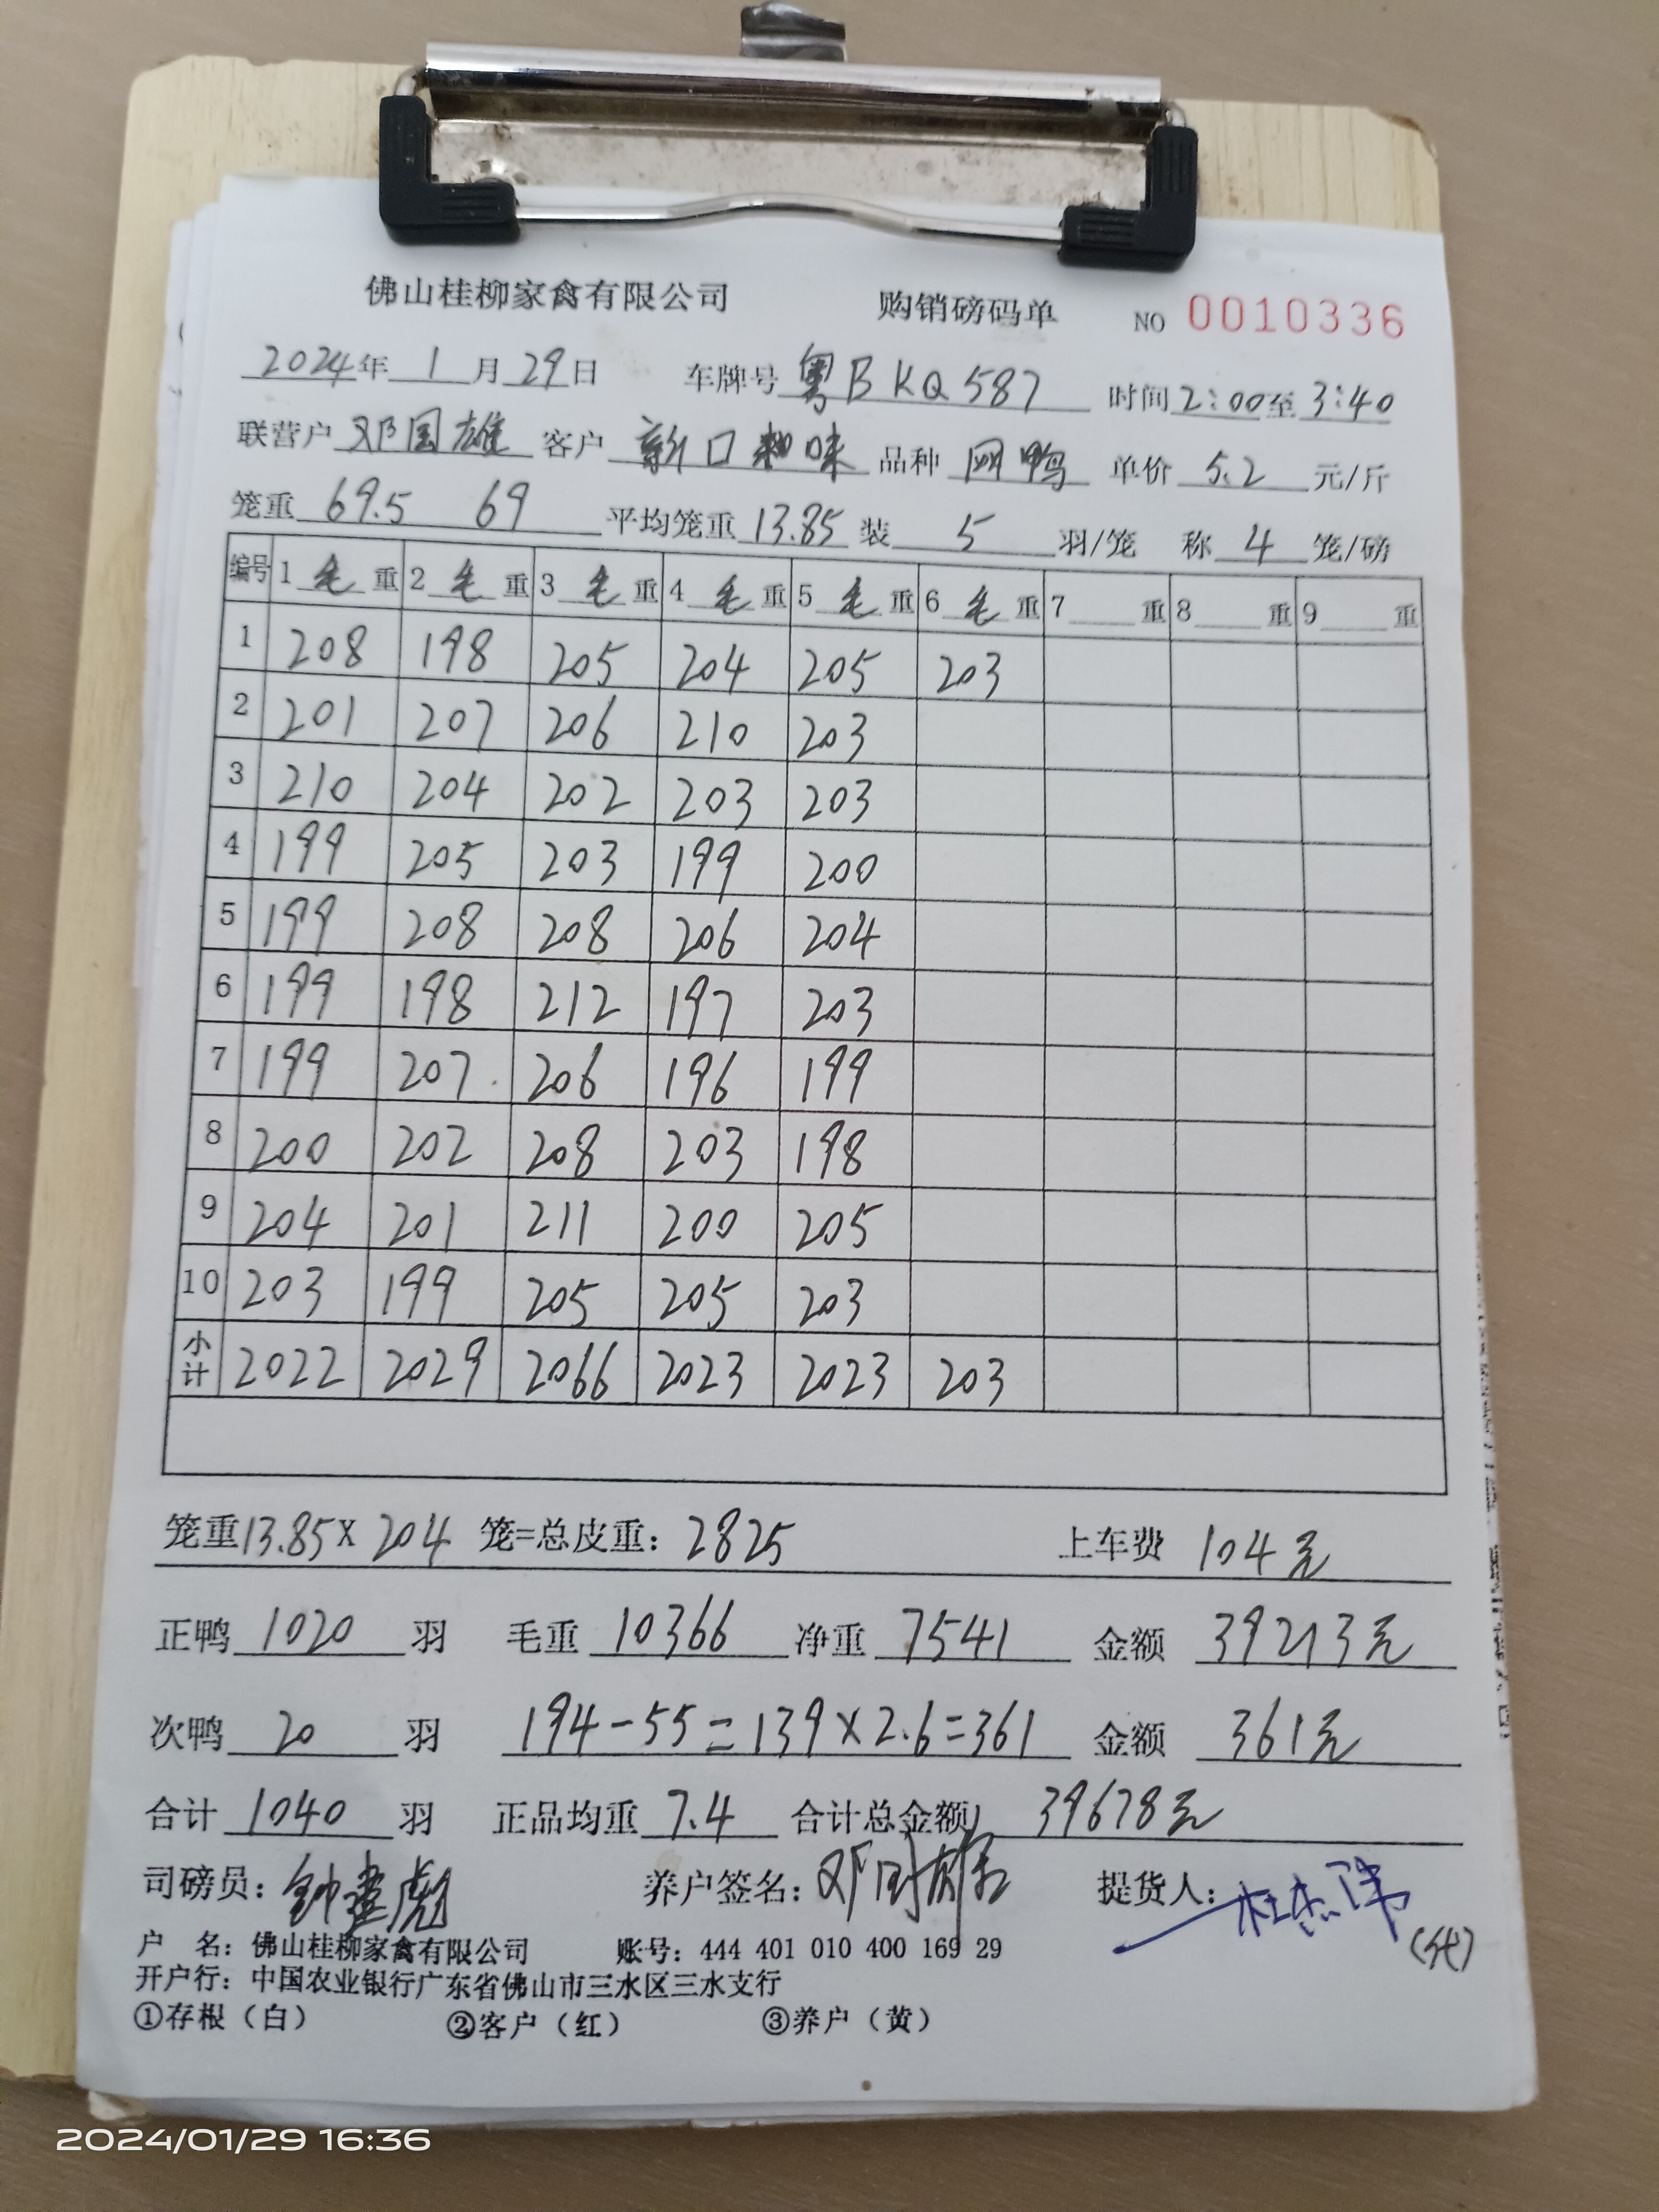 佛山桂柳家禽有限公司 购销磅码单 NO 0010336
2024年 1 月 29 日 车牌号 粤B KQ587 时间 2:00 至 3:40
联营户 邓国雄 客户 新口味 品种 网鸭 单价 5.2 元/斤
笼重 69.5 69 平均笼重 13.85 装 5 羽/笼 称 4 笼/磅
编号 1 毛 重 2 毛 重 3 毛 重 4 毛 重 5 毛 重 6 毛 重 7 重 8 重 9 重
1 208 198 205 204 205 203
2 201 207 206 210 203
3 210 204 202 203 203
4 199 205 203 199 200
5 199 208 208 206 204
6 199 198 212 197 203
7 199 207 206 196 199
8 200 202 208 203 198
9 204 201 211 200 205
10 203 199 205 205 203
小计 2022 2029 2066 2023 2023 203
笼重 13.85 X 204 笼=总皮重: 2825 上车费 104元
正鸭 1020 羽 毛重 10366 净重 7541 金额 39213元
次鸭 20 羽 194-55=139×2.6=361 金额 361元
合计 1040 羽 正品均重 7.4 合计总金额 39678元
司磅员: 钟建彪 养户签名: 邓国雄 提货人: 杜杰伟
(代)
户 名: 佛山桂柳家禽有限公司 账号: 444 401 010 400 169 29
开户行: 中国农业银行广东省佛山市三水区三水支行
①存根(白) ②客户(红) ③养户(黄)
2024/01/29 16:36